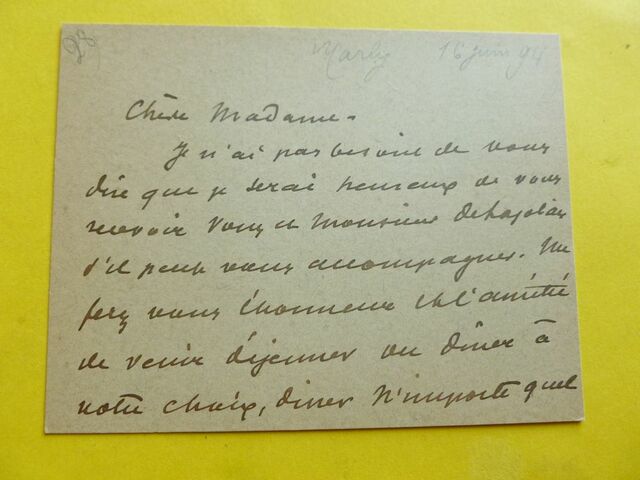 28
Marly 16 juin 94
Chère Madame -
Je n'ai pas besoin de vous
dire que je serai heureux de vous
recevoir vous et Monsieur
s'il peut vous accompagner. Me
ferez vous l'honneur et l'amitié
de venir déjeuner ou dîner à
votre choix, diner n'importe quel